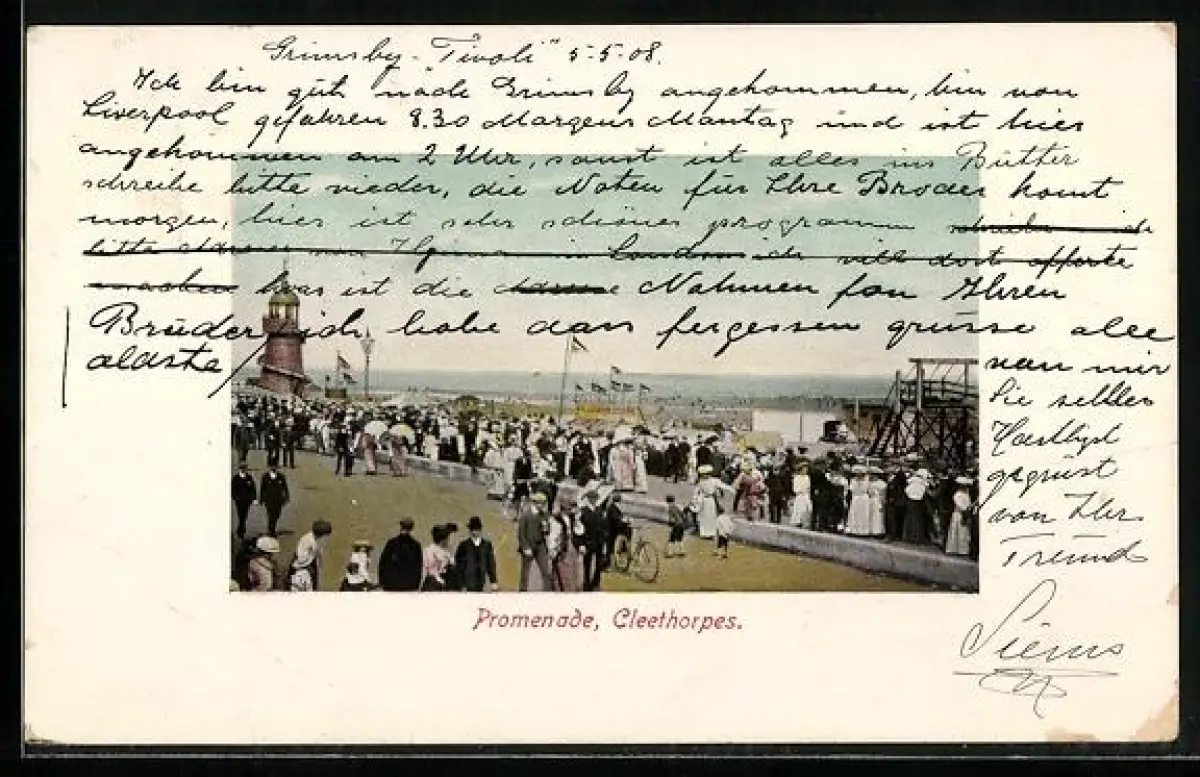 Grimsby - "Tivoli" 5-5-08.
Ich bin gut nach Grimsby angekommen, bin von
Liverpool gefahren 8.30 Margens Mantag und ist hier
angekommen am 2 Uhr, sonst ist alles ins Butter
schreibe bitte wieder, die Noten für Ihre Broder komt
morgen, hier ist sehr schönes programm
bitte in London ich will dort offerte
was ist die Nahmen fon Ihren
Brüder, ich habe dass fergessen grüsse alle
aldste
van mir
Sie selber
Haertlyst
gegrüst
van Ihr
Treund
Siems
Promenade, Cleethorpes.